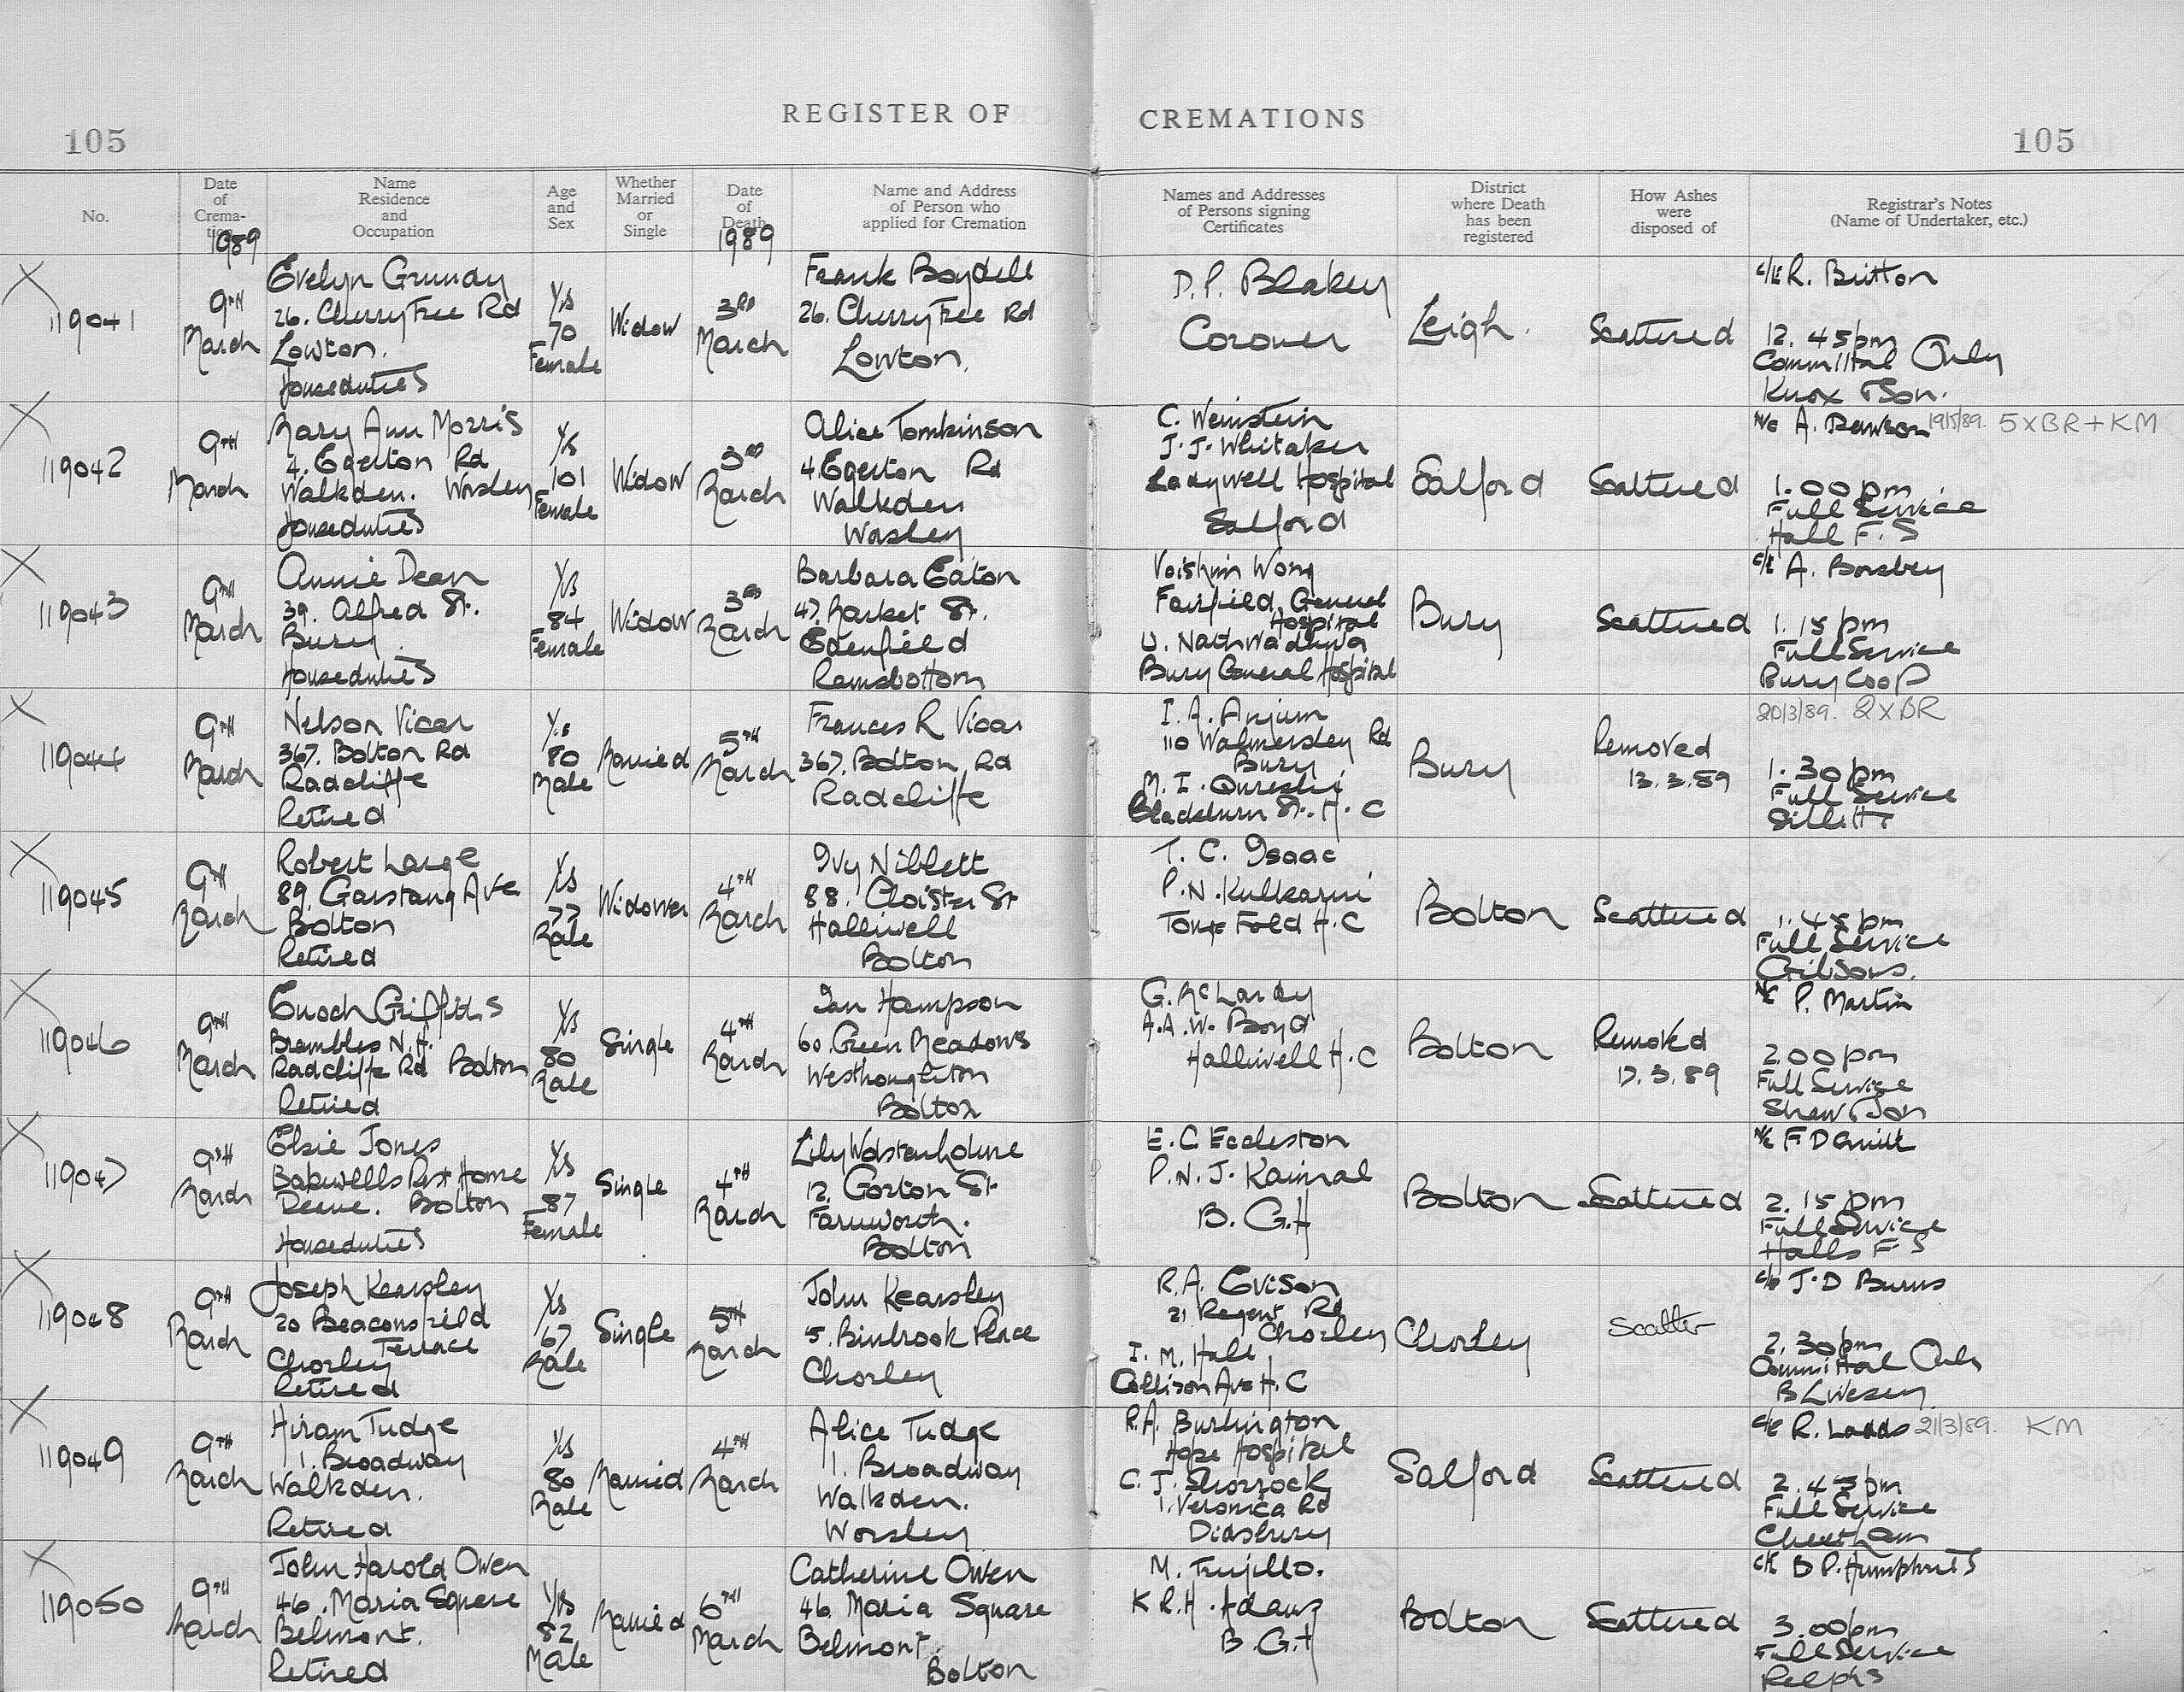 REGISTER OF CREMATIONS
105
105
No.
Date of Crema- tion
1989
Name Residence and Occupation
Age and Sex
Whether Married or Single
Date of Death
1989
Name and Address of Person who applied for Cremation
Names and Addresses of Persons signing Certificates
District where Death has been registered
How Ashes were disposed of
Registrar's Notes (Name of Undertaker, etc.)
119041
9TH
March
Evelyn Grundy
26. Cherry Tree Rd
Lowton.
Houseduties
Yrs
70
Female
Widow
3RD
March
Frank Boydell
26. Cherry Tree Rd
Lowton.
D. P. Blakey
Coroner
Leigh.
Scattered
C/E R. Britton
12. 45pm
Committal Only
Knox & Son.
119042
9TH
March
Mary Ann Morris
4. Egerton Rd
Walkden. Worsley
Houseduties
Yrs
101
Female
Widow
3RD
March
Alice Tomkinson
4 Egerton Rd
Walkden
Worsley
C. Weinstein
J. J. Whitaker
Ladywell Hospital
Salford
Salford
Scattered
N/C A. Dawson 19/5/89. 5xBR+KM
1.00 pm
Full Service
Hall F. S
119043
9TH
March
Annie Dean
39. Alfred St.
Bury.
Houseduties
Yrs
84
Female
Widow
3RD
March
Barbara Eaton
47. Market St.
Edenfield
Ramsbottom
Voiskin Wong
Fairfield General
Hospital
U. Nath Wadhwa
Bury General Hospital
Bury
Scattered
C/E A. Borsbey
1. 15 pm
Full Service
Bury Coop
119044
9TH
March
Nelson Vicar
367. Bolton Rd
Radcliffe
Retired
Yrs
80
Male
Married
5TH
March
Frances R Vicar
367. Bolton Rd
Radcliffe
I. A. Anjum
110 Walmersley Rd
Bury
M. I. Qureshi
Blackburn St. H. C
Bury
Removed
13.3.89
20/3/89. 2xBR
1. 30pm
Full Service
Sillitt
119045
9TH
March
Robert Large
89. Garstang Ave
Bolton
Retired
Yrs
77
Male
Widower
4TH
March
Ivy Niblett
88. Cloister St
Halliwell
Bolton
T. C. Isaac
P. N. Kulkarni
Tonge Fold H. C
Bolton
Scattered
1. 45 pm
Full Service
Gibsons.
119046
9TH
March
Enoch Griffiths
Brambles N.H.
Radcliffe Rd Bolton
Retired
Yrs
80
Male
Single
4TH
March
Ian Hampson
60. Green Meadows
Westhoughton
Bolton
G. McLardy
A.A.W. Boyd
Halliwell H. C
Bolton
Removed
17. 3. 89
N/C P. Martin
2.00 pm
Full Service
Shaw & Son
119047
9TH
March
Elsie Jones
Bakewells Rest Home
Deane. Bolton
Houseduties
Yrs
87
Female
Single
4TH
March
Lily Wolstenholme
12. Gorton St
Farnworth.
Bolton
E. C Eccleston
P. N. J. Kaimal
B. G. H
Bolton
Scattered
N/C F
2. 15 pm
Full Service
Halls F S
119048
9TH
March
Joseph Kearsley
20 Beaconsfield
Terrace
Chorley
Retired
Yrs
67
Male
Single
5TH
March
John Kearsley
5. Binbrook Place
Chorley
R. A. Evison
21 Regent Rd
Chorley
I. M. Hall
Collison Ave H. C
Chorley
Scatter
J. D Burns
2. 30pm
Committal Only
B Livesey
119049
9TH
March
Hiram Tudge
11. Broadway
Walkden.
Retired
Yrs
80
Male
Married
4TH
March
Alice Tudge
11. Broadway
Walkden.
Worsley
R.A. Burlington
Hope Hospital
C. J. Shorrock
1. Veronica Rd
Didsbury
Salford
Scattered
C/E R. Ladds 21/3/89. KM
2. 45pm
Full Service
Cheetham
119050
9TH
March
John Harold Owen
46. Maria Square
Belmont.
Retired
Yrs
82
Male
Married
6TH
March
Catherine Owen
46. Maria Square
Belmont.
Bolton
M. Trujillo.
K R.H. Adams
B. G. H
Bolton
Scattered
C/E B P. Humphries
3.00pm
Full Service
Relphs